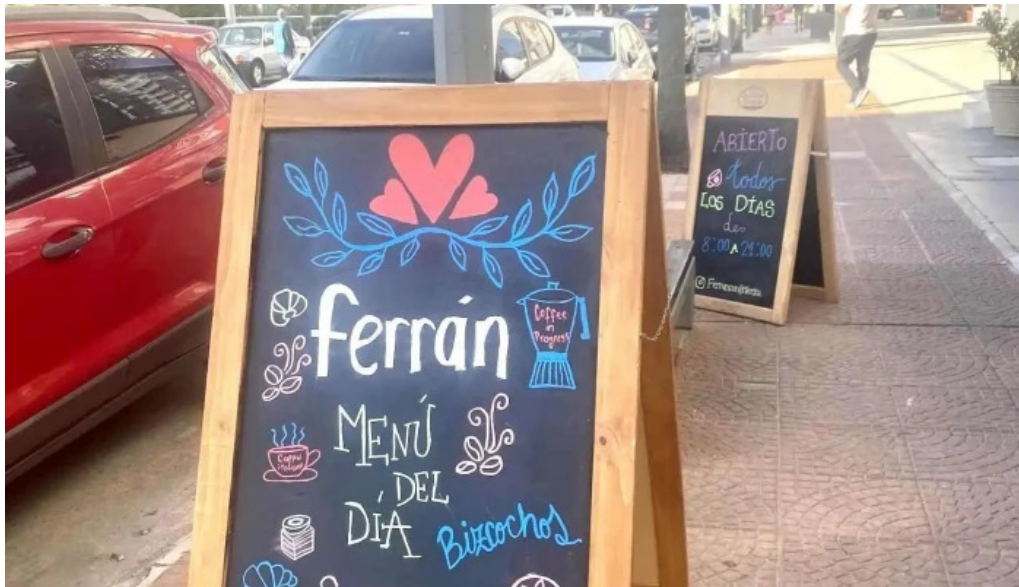 ferrán
Coffee
in
Progress
MENÚ
DEL
DÍA
Bizcochos
ABIERTO
todos
LOS DÍAS
de
8:00 A 21:00